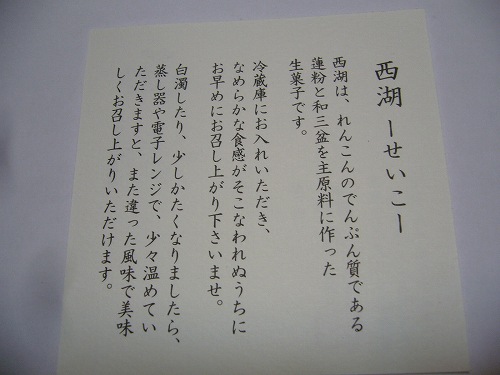 西湖ーせいこー
西湖は、れんこんのでんぷん質である
蓮粉と和三盆を主原料に作った
生菓子です。
冷蔵庫にお入れいただき、
なめらかな食感がそこなわれぬうちに
お早めにお召し上がり下さいませ。
白濁したり、少しかたくなりましたら、
蒸し器や電子レンジで、少々温めてい
ただきますと、また違った風味で美味
しくお召し上がりいただけます。